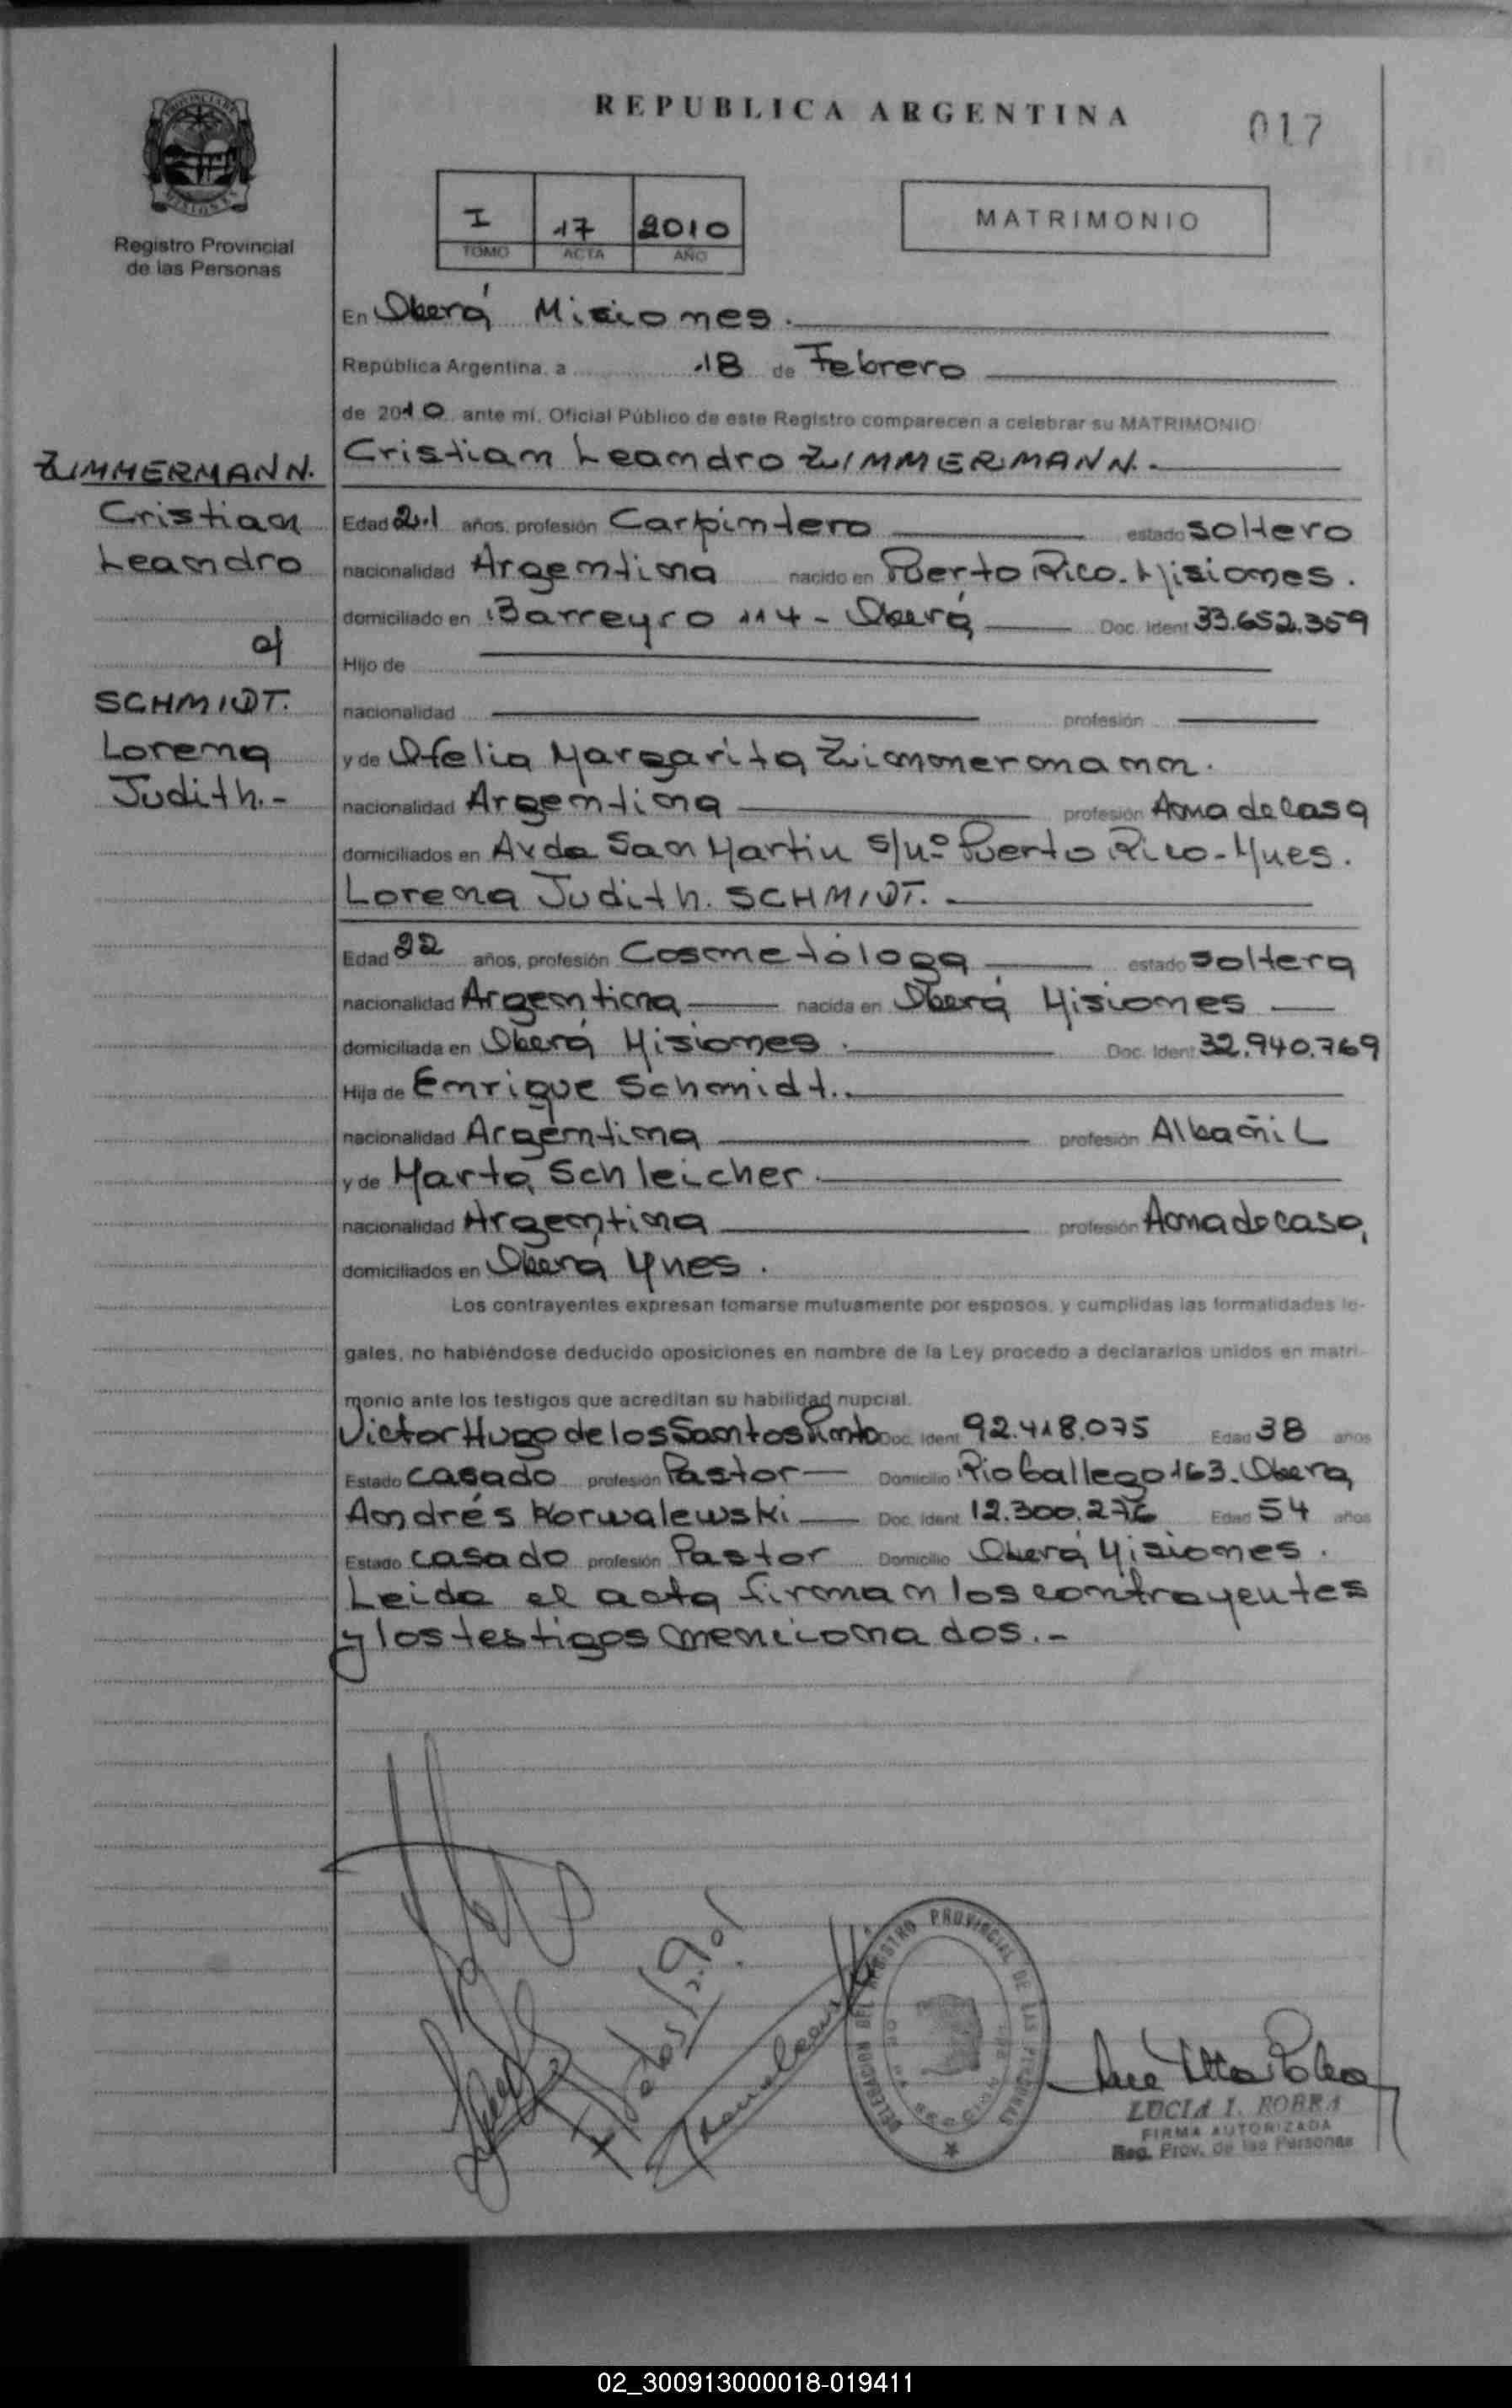 REPUBLICA ARGENTINA
017
Registro Provincial
de las Personas
I 17 2010
TOMO ACTA AÑO
MATRIMONIO
En Oberá Misiones.
República Argentina, a 18 de Febrero
de 2010 ante mí, Oficial Público de este Registro comparecen a celebrar su MATRIMONIO:
Cristian Leandro ZIMMERMANN.-
ZIMMERMANN.
Cristian
Leandro
c/
SCHMIDT.
Lorena
Judith.-
Edad 21 años, profesión Carpintero estado soltero
nacionalidad Argentina nacido en Puerto Rico. Misiones.
domiciliado en Barreyro 114 - Oberá Doc. Ident 33.652.359
Hijo de
nacionalidad profesión
y de Ofelia Margarita Zimmermann.
nacionalidad Argentina profesión Ama de casa
domiciliados en Avda San Martin s/nº Puerto Rico-Mnes.
Lorena Judith. SCHMIDT.-
Edad 22 años, profesión Cosmetóloga estado soltera
nacionalidad Argentina nacida en Oberá Misiones
domiciliada en Oberá Misiones. Doc. Ident 32.940.769
Hija de Enrique Schmidt.
nacionalidad Argentina profesión Albañil
y de Marta Schleicher.
nacionalidad Argentina profesión Ama de casa,
domiciliados en Oberá Mnes.
Los contrayentes expresan tomarse mutuamente por esposos, y cumplidas las formalidades le-
gales, no habiéndose deducido oposiciones en nombre de la Ley procedo a declararlos unidos en matri-
monio ante los testigos que acreditan su habilidad nupcial.
Victor Hugo de los Santos Pinto Doc. Ident 92.418.075 Edad 38 años
Estado casado profesión Pastor Domicilio Rio Gallego 163. Oberá
Andrés Korwalewski Doc. Ident 12.300.276 Edad 54 años
Estado casado profesión Pastor Domicilio Oberá Misiones.
Leida el acta firman los contrayentes
y los testigos mencionados.-
DELEGACION DEL REGISTRO PROVINCIAL DE LAS PERSONAS
LUCIA I. ROBRA
FIRMA AUTORIZADA
Reg. Prov. de las Personas
02_300913000018-019411